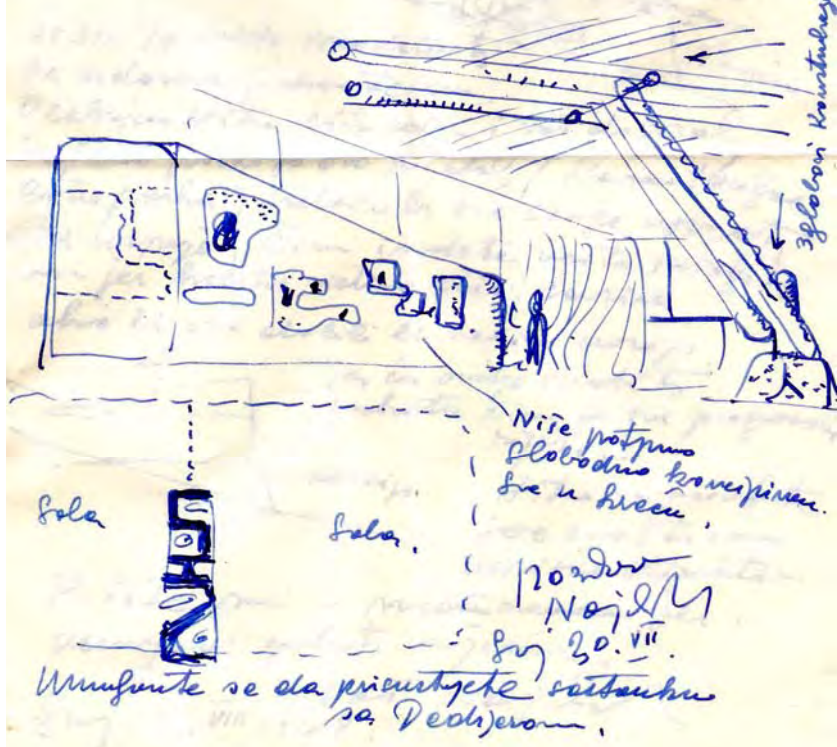 Zglobovi Konstrukcije
Niše potpuno
slobodno koncipirane.
Sve u kreču.
Soba
Soba.
Pozdrav
Saj 20. VII.
da prisustvujete sastanku
sa Dedijerom.